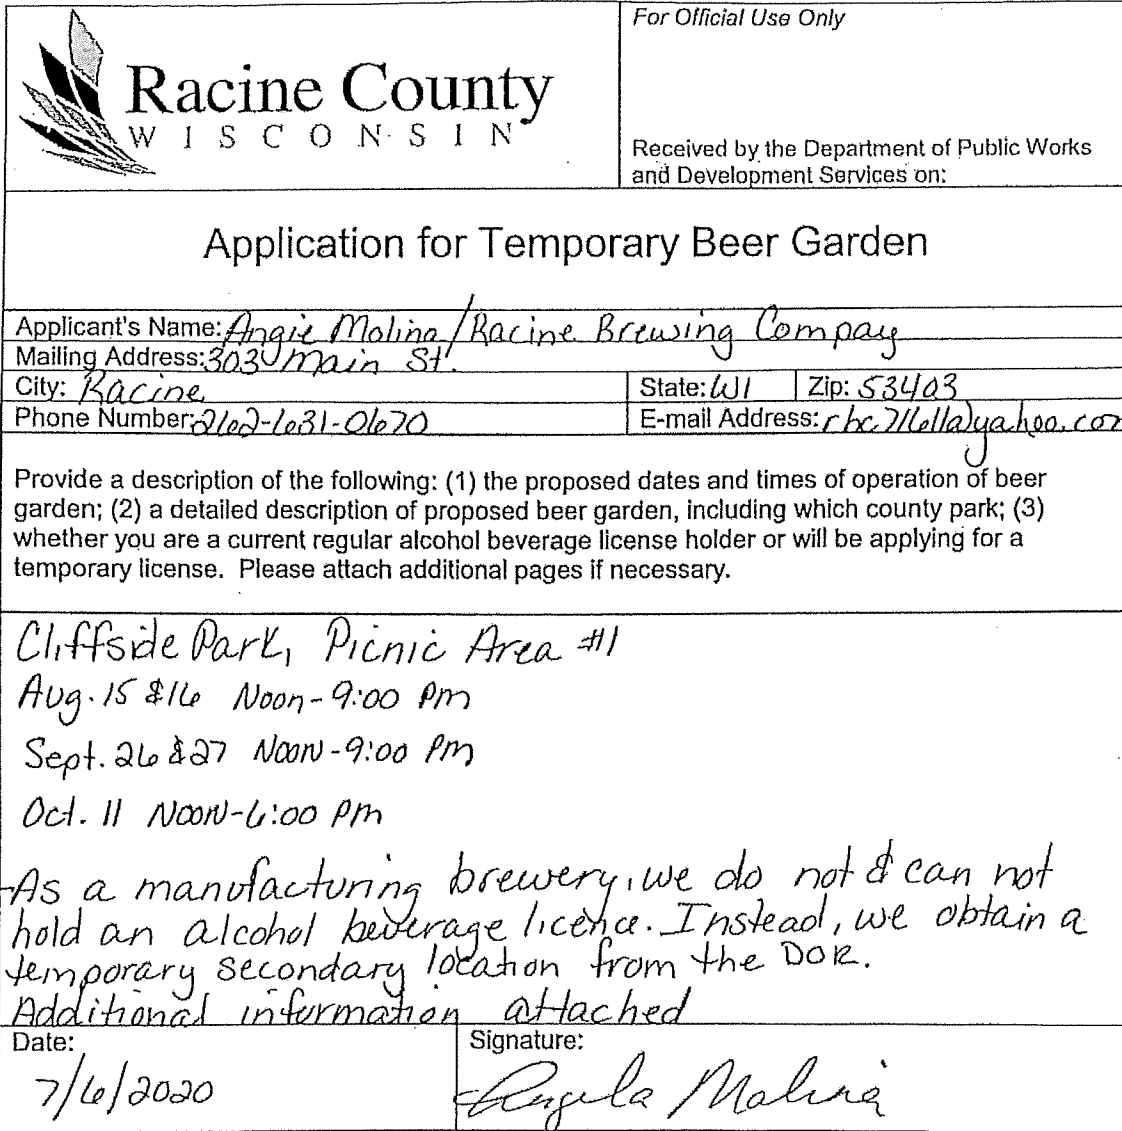 For Official Use Only
Racine County
WISCONSIN
Received by the Department of Public Works
and Development Services on:
Application for Temporary Beer Garden
Applicant's Name: Angie Molina/Racine Brewing Compay
Mailing Address: 303 Main St.
City: Racine State: WI Zip: 53403
Phone Number: 262-631-0670 E-mail Address:
Provide a description of the following: (1) the proposed dates and times of operation of beer
garden; (2) a detailed description of proposed beer garden, including which county park; (3)
whether you are a current regular alcohol beverage license holder or will be applying for a
temporary license. Please attach additional pages if necessary.
Cliffside Park, Picnic Area #1
Aug. 15 & 16 Noon - 9:00 pm
Sept. 26 & 27 Noon - 9:00 pm
Oct. 11 Noon - 6:00 pm
-As a manufacturing brewery, we do not & can not
hold an alcohol beverage licence. Instead, we obtain a
temporary secondary location from the DOR.
Additional information attached
Date: Signature:
7/6/2020 Angela Molina